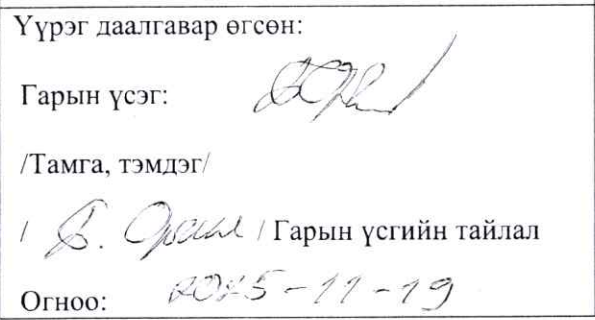 Үүрэг даалгавар өгсөн:
Гарын үсэг:
/Тамга, тэмдэг/
/ / Гарын үсгийн тайлал
Огноо: 2025-11-19